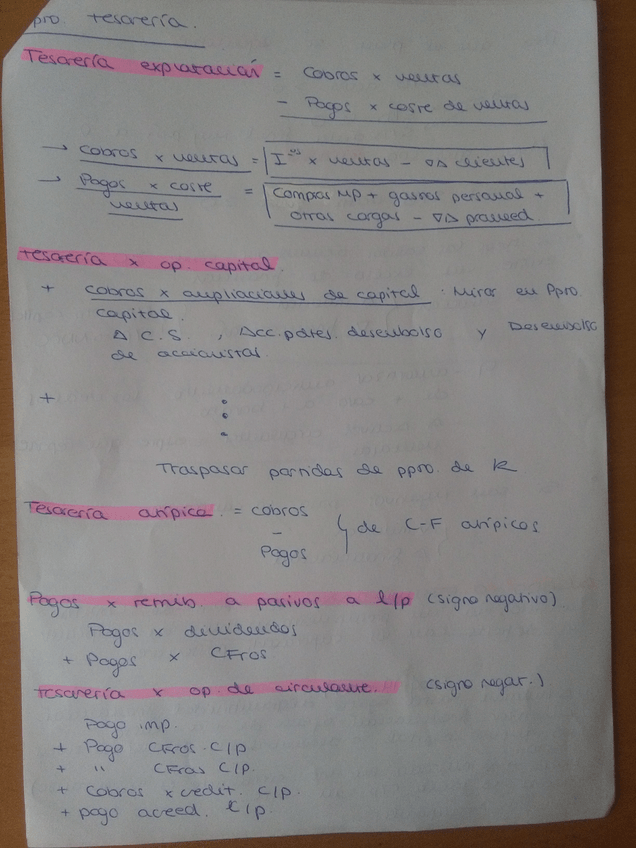 ppro. tesorería.
Tesorería explotación = Cobros x ventas
- Pagos x coste de ventas
→ Cobros x ventas = Iᵒˢ x ventas - ∇Δ clientes
→ Pagos x coste ventas = Compras MP + gastos personal +
otras cargas - ∇Δ proveed
Tesorería x op. capital
+ cobros x ampliaciones de capital : Mirar en Ppro.
capital.
Δ C.S. , Acc. pdtes. desembolso y Desembolso
de accionistas.
+ ⋮
Traspasar partidas de ppro. de K
Tesorería atípica = cobros
- Pagos } de C-F atípicos
Pagos x remib. a pasivos a l/p (signo negativo)
Pagos x dividendos
+ Pagos x CFros
tesorería x op. de circulante. (signo negat.)
Pago imp.
+ Pago CFros. C/p.
+ " CFros C/p.
+ Cobros x credit. C/p.
+ pago acreed. l/p.